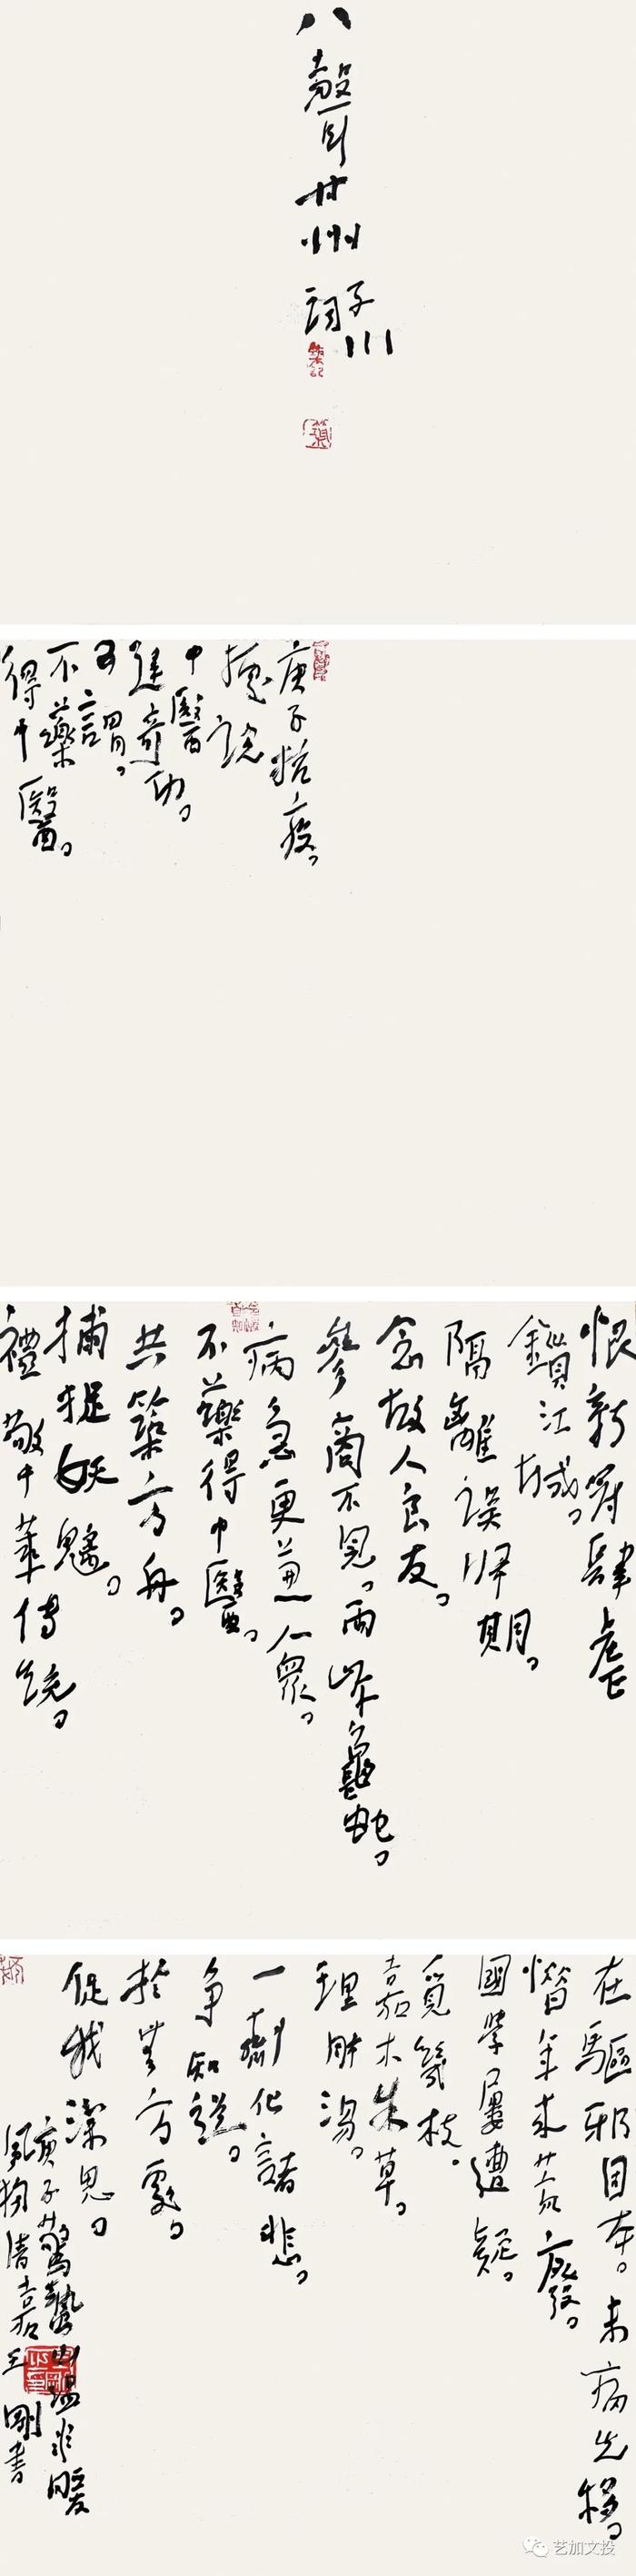 八聲甘州
子川
詞
庚子抗疫。
據說
中醫
建奇功。
可謂。
不藥
得中醫。
恨新冠肆虐
鎖江城。
隔離誤歸期。
念故人良友。
參商不見。兩岸龜蛇。
病急更兼人衆。
不藥得中醫。
共築方舟。
捕捉妖魑。
禮敬中華傳統。
在驅邪固本。未病先移。
年來荒廢。
國學屢遭疑。
覓幾枝。
嘉木朱草。
理肺。
一劑化諸悲。
爭知道。
於無方處。
促我思。
庚子驚蟄山溫水暖
風物清嘉王剛書
艺加文投